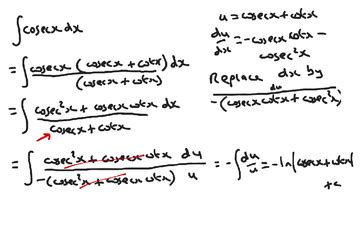 ∫ cosecx dx
= ∫ cosecx (cosecx + cotx) dx / (cosecx + cotx)
= ∫ cosec²x + cosecx cotx dx / cosecx + cotx
= ∫ cosec²x + cosecx cotx / -(cosec²x + cosecx cotx) du / u = -∫ du/u = -ln|cosecx + cotx| + c
u = cosecx + cotx
du/dx = -cosecx cotx - cosec²x
Replace dx by
du / -(cosecx cotx + cosec²x)